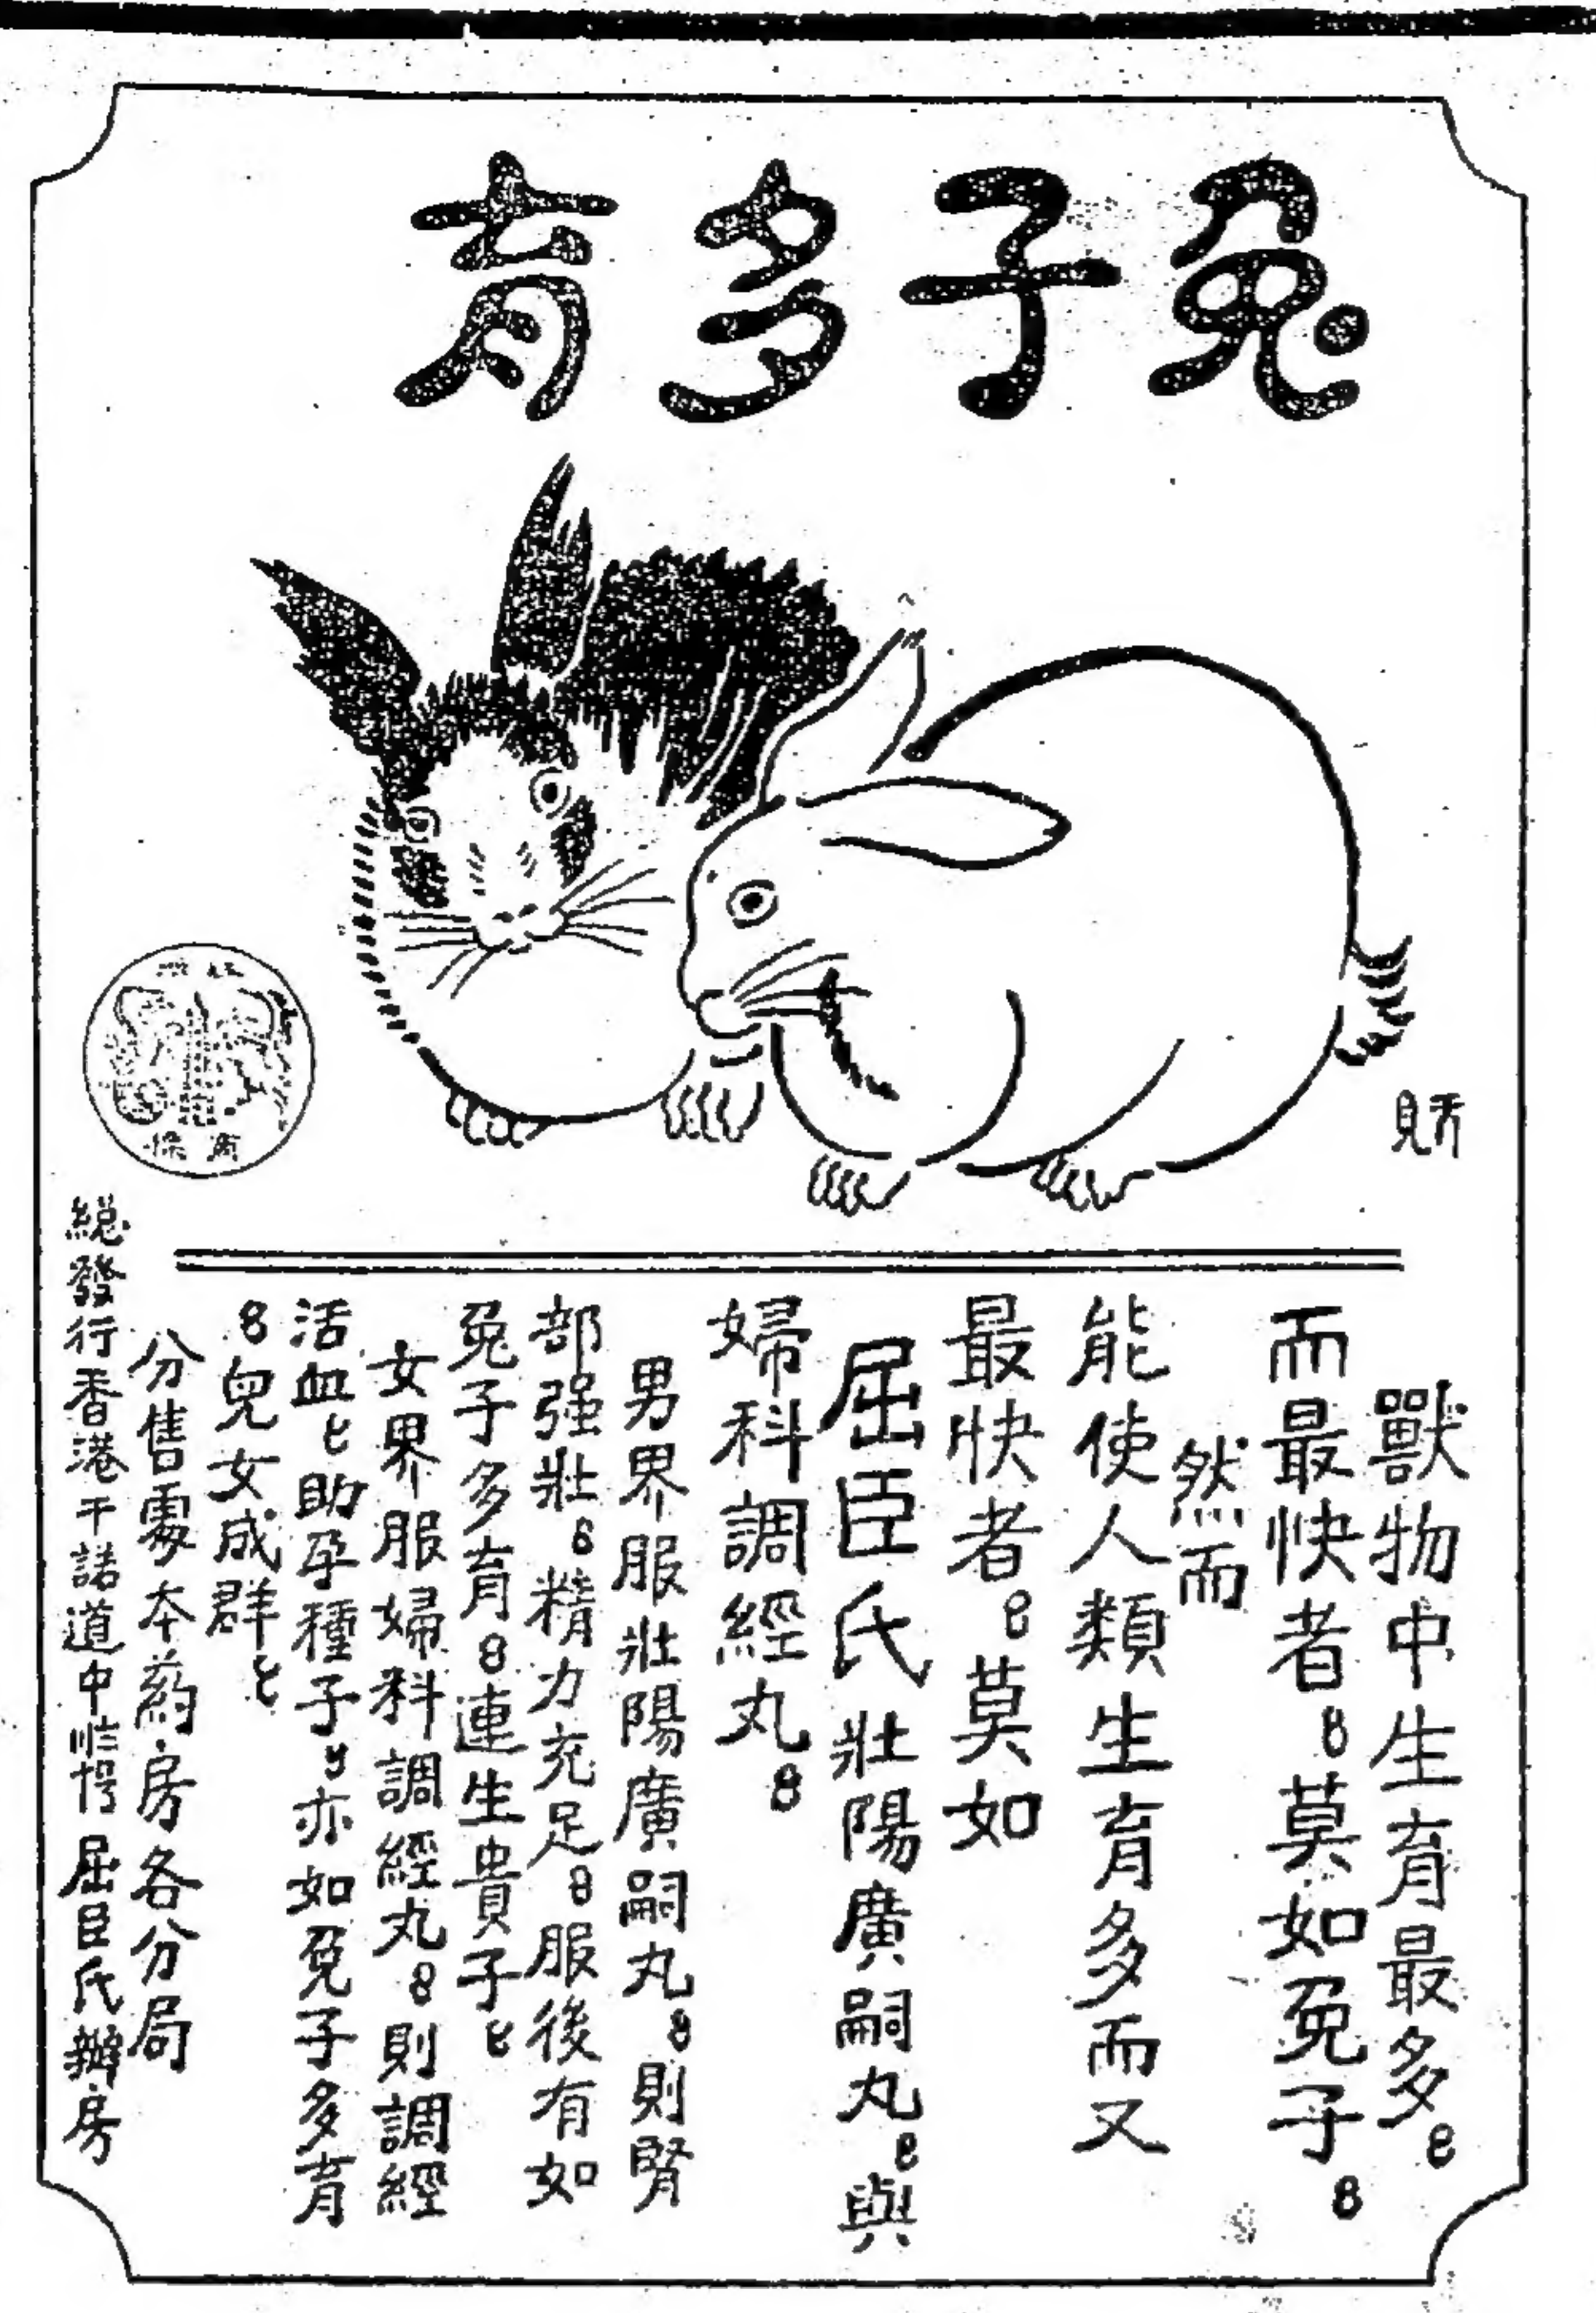 兔子多育
獸物中生育最多。
而最快者。莫如兔子。
然而
能使人類生育多而又
最快者。莫如
屈臣氏壯陽廣嗣丸。與
婦科調經丸。
男界服壯陽廣嗣丸。則腎
部强壯。精力充足。服後有如
兔子多育。連生貴子。
女界服婦科調經丸。則調經
活血。助孕種子。亦如兔子多育
。兒女成群。
分售處本葯房各分局
總發行香港干諾道中 屈臣氏藥房